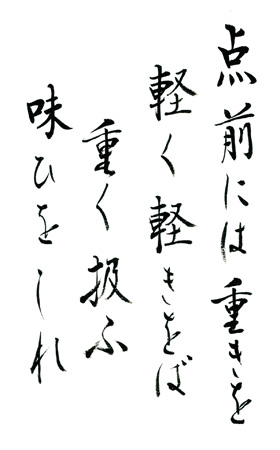 点前には重きを
軽く軽きをば
重く扱ふ
味ひをしれ